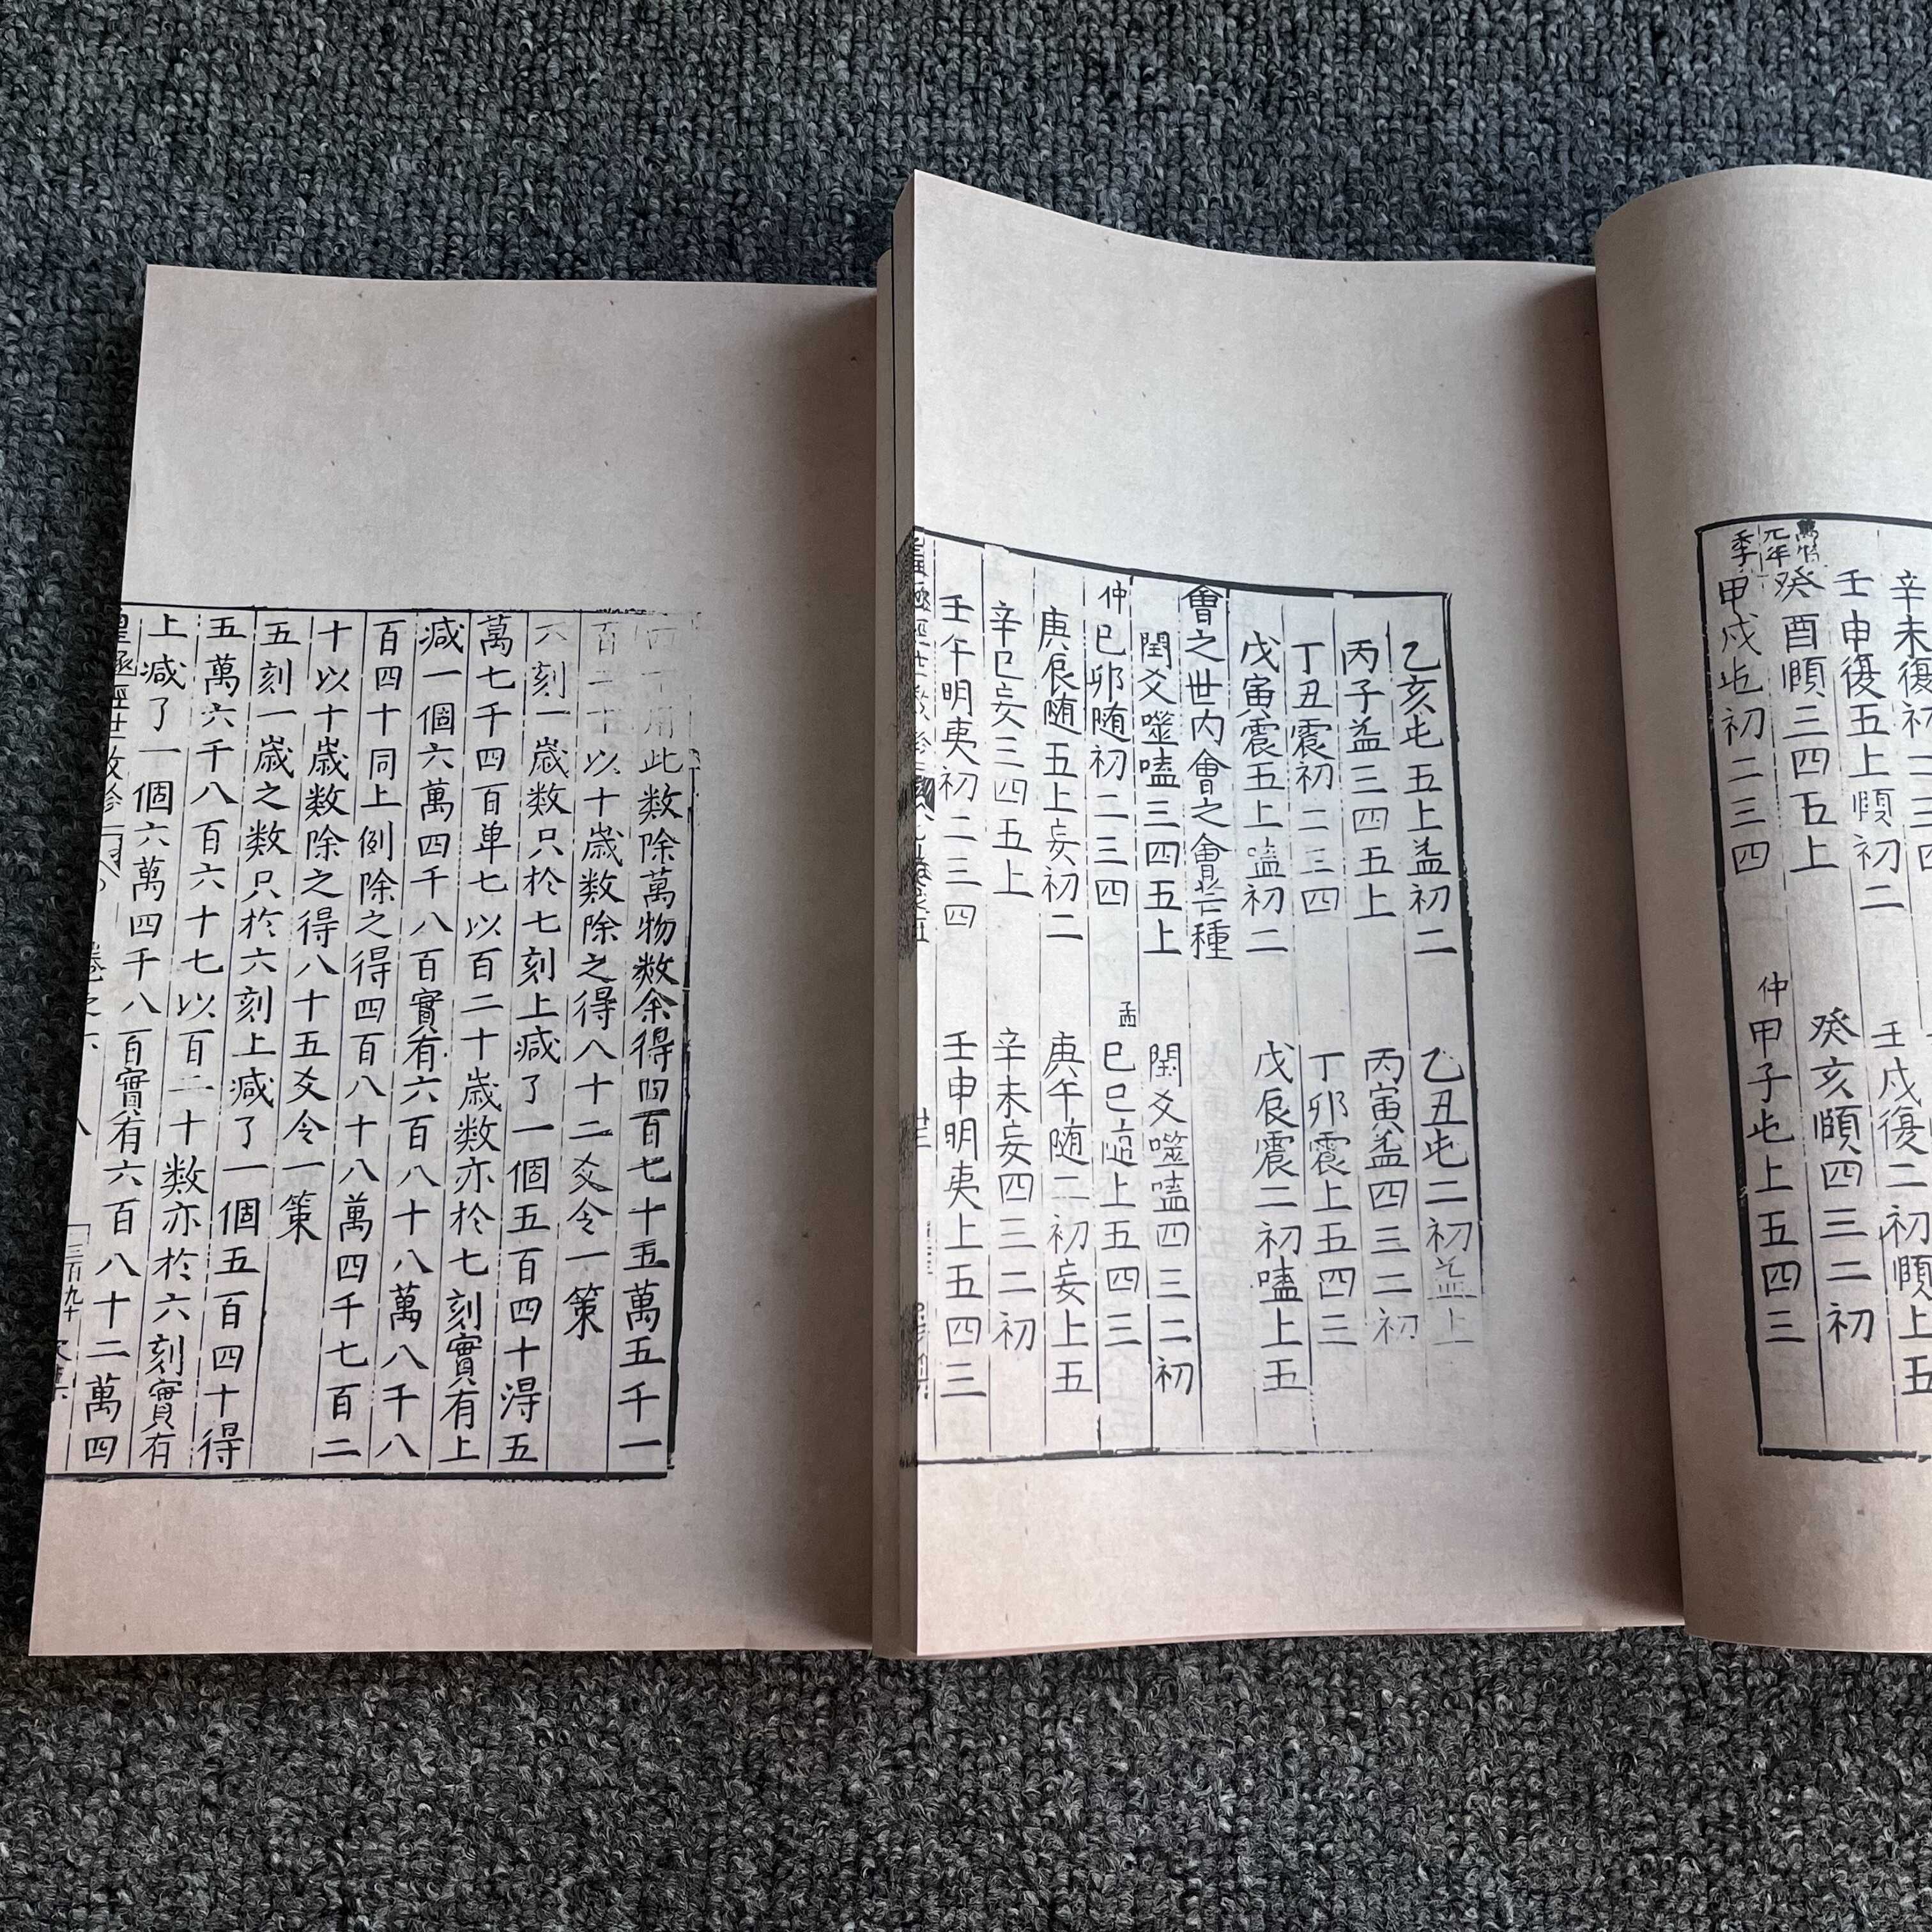 辛未復初二三四
壬申復五上頤初二 壬戌復二初頤上五
萬曆元年
癸酉頤三四五上 癸亥頤四三二初
季甲戌屯初二三四 仲甲子屯上五四三
乙亥屯五上益初二 乙丑屯二初益上
丙子益三四五上 丙寅益四三二初
丁丑震初二三四 丁卯震上五四三
戊寅震五上嗑初二 戊辰震二初嗑上五
會之世內會之會芒種
閏爻噬嗑三四五上 閏爻噬嗑四三二初
仲己卯随初二三四 孟己巳随上五四三
庚辰随五上妄初二 庚午随二初妄上五
辛巳妄三四五上 辛未妄四三二初
壬午明夷初二三四 壬申明夷上五四三
用此数除萬物数余得四百七十五萬五千一
百二十以十歳数除之得八十二爻令一策
六刻一歳数只於七刻上減了一個五百四十得五
萬七千四百单七以百二十歳数亦於七刻實有上
減一個六萬四千八百實有六百八十八萬八千八
百四十同上例除之得四百八十八萬四千七百二
十以十歳数除之得八十五爻令一策
五刻一歳之数只於六刻上減了一個五百四十得
五萬六千八百六十七以百二十数亦於六刻實有
上減了一個六萬四千八百實有六百八十二萬四
皇極經世数